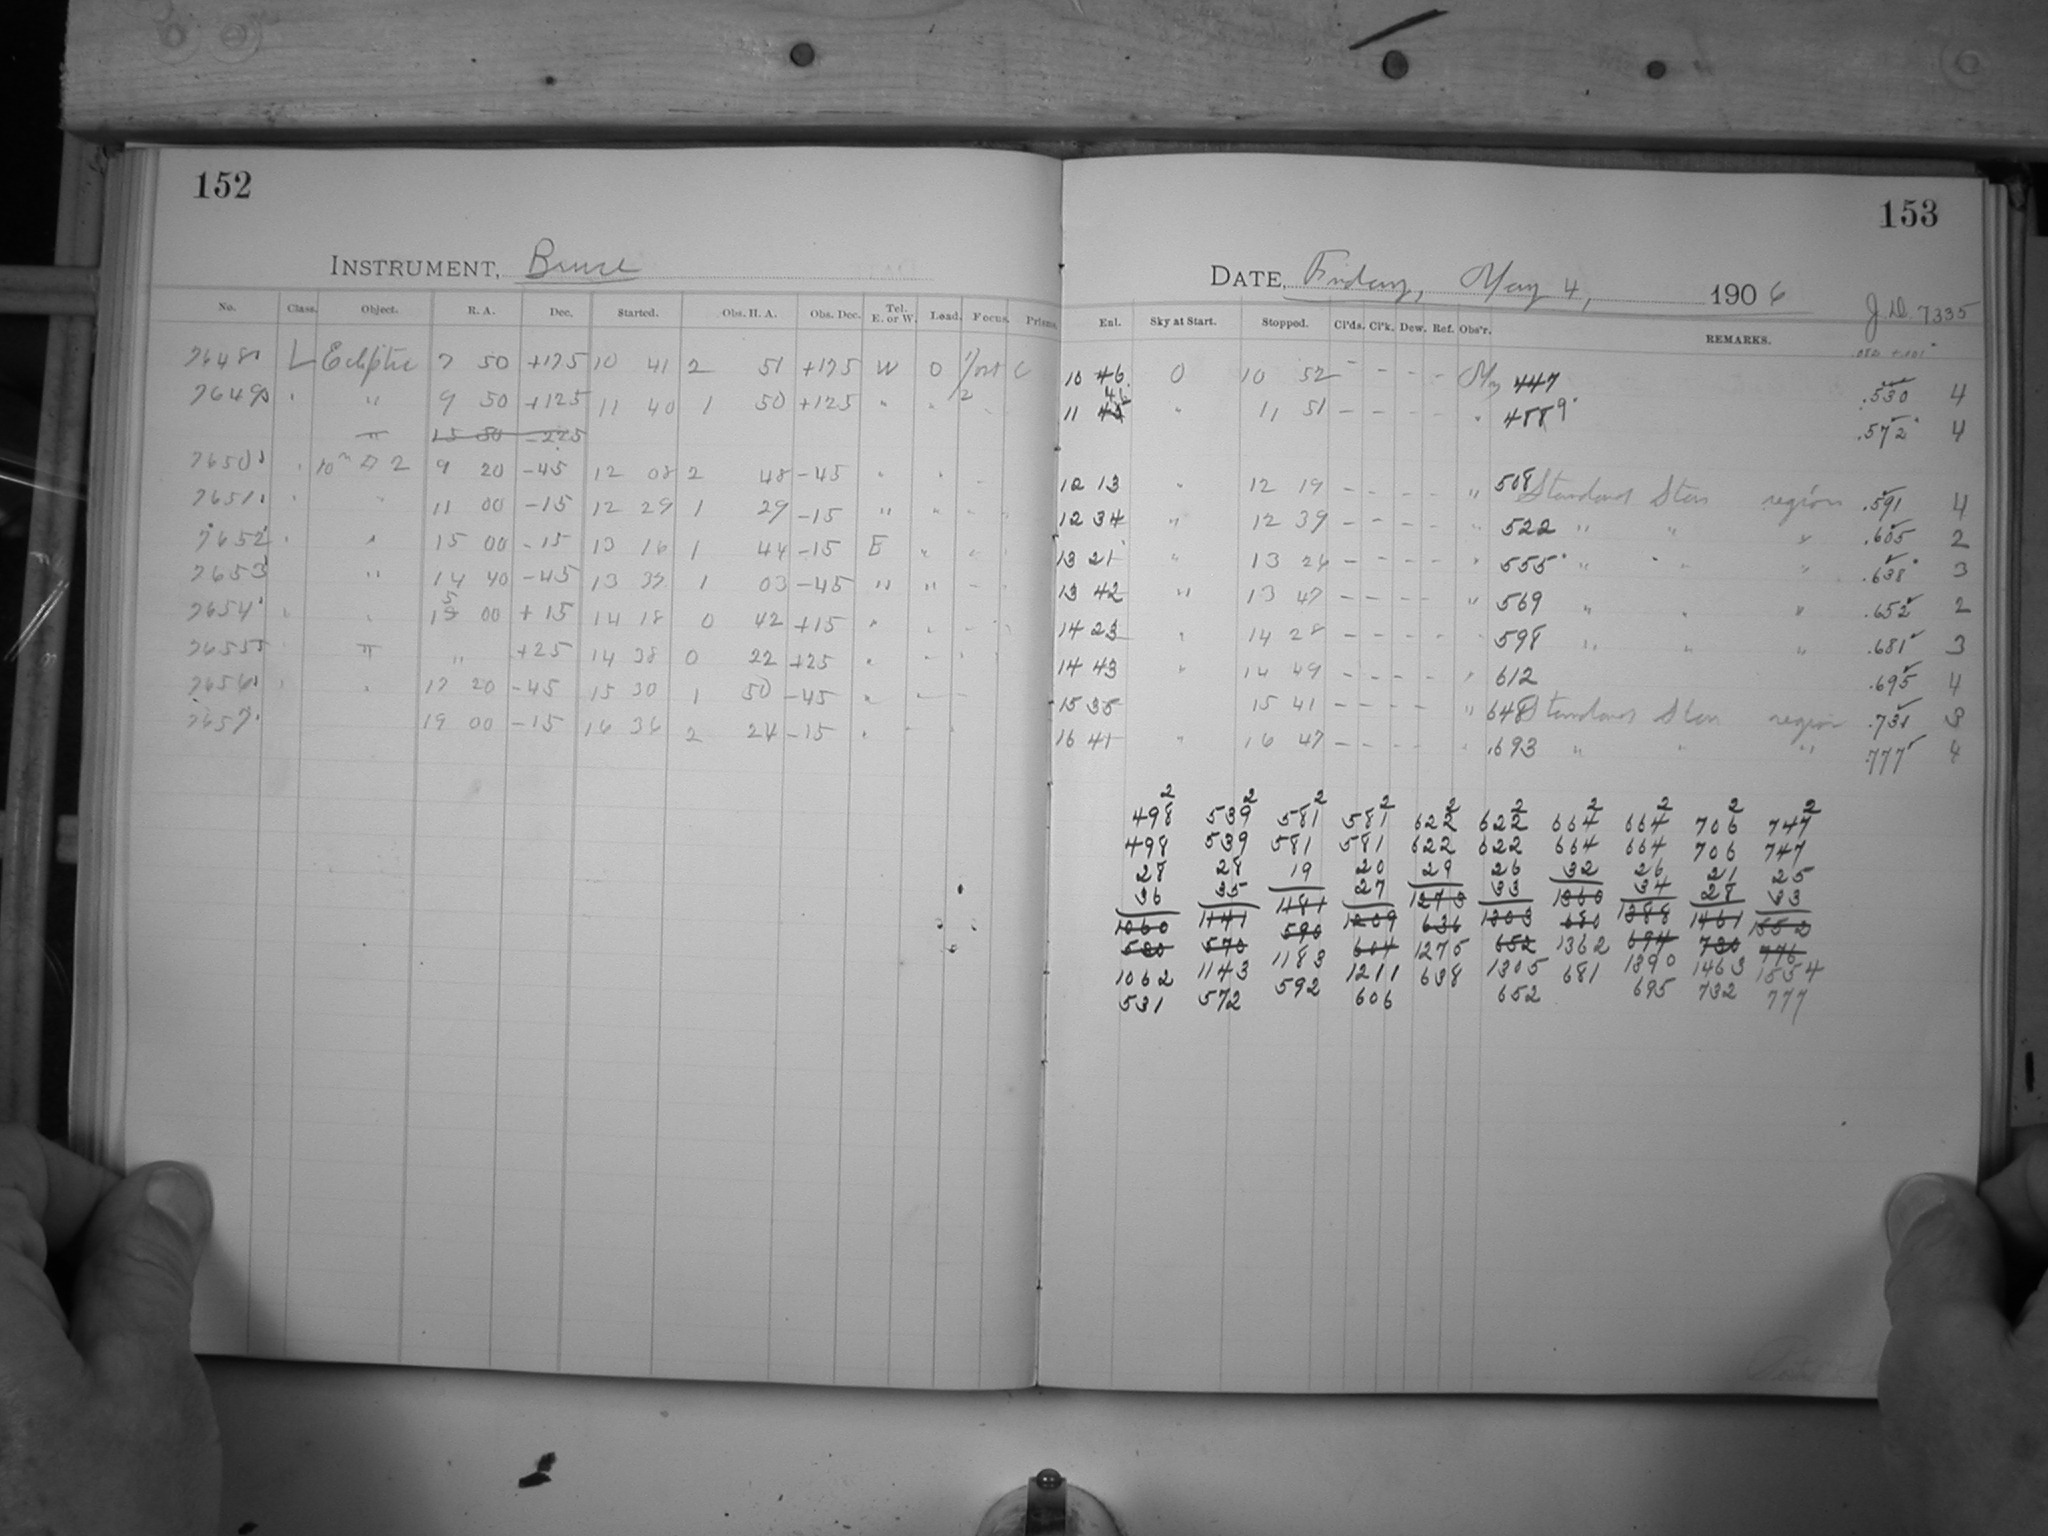 152
153
INSTRUMENT, Bruce
DATE, Friday, May 4, 1906
J.D. 7335
No. Class. Object. R. A. Dec. Started. Obs. H. A. Obs. Dec. Tel. E. or W. Load. Focus. Prisms.
Enl. Sky at Start. Stopped. Cl'ds. Cl'k. Dew. Ref. Obs'r. REMARKS.
7648 L Ecliptic 7 50 +175 10 41 2 51 +175 W 0 C 10 46 0 10 52 - - - - 447 .530 4
7649 " " 9 50 +125 11 40 1 50 +125 " " 11 46 " 11 51 - - - - " 4889 .572 4
" 15 50 -225
7650 " 10m 2 9 20 -45 12 08 2 48 -45 " " 12 13 " 12 19 - - - - " 508 Standard Stars region .591 4
7651 " " 11 00 -15 12 29 1 29 -15 " " 12 34 " 12 39 - - - - " 522 " " " .605 2
7652 " " 15 00 -15 13 16 1 44 -15 E " 13 21 " 13 26 - - - - " 555 " " " .638 3
7653 " 14 40 -45 13 37 1 03 -45 " " 13 42 " 13 47 - - - - " 569 " " " .652 2
7654 " " 15 00 +15 14 18 0 42 +15 " " 14 23 " 14 28 - - - - " 598 " " " .681 3
7655 " " +25 14 38 0 22 +25 " " 14 43 " 14 49 - - - - " 612 .695 4
7656 " " 17 20 -45 15 30 1 50 -45 " 15 35 15 41 - - - - " 648 Standard Stars region .731 3
7657 19 00 -15 16 36 2 24 -15 " " 16 41 " 16 47 - - - - " .693 " " " .777 4
2 2 2 2 2 2 2 2 2 2
498 539 581 581 622 622 664 664 706 747
498 539 581 581 622 622 664 664 706 747
28 28 19 20 29 26 32 26 21 25
36 35 1181 27 1273 33 1360 34 28 33
1060 1141 590 1209 636 1303 680 1388 1461 1552
530 570 1183 604 1275 652 1362 694 730 776
1062 1143 592 1211 638 1305 681 1390 1463 1554
531 572 606 652 695 732 777